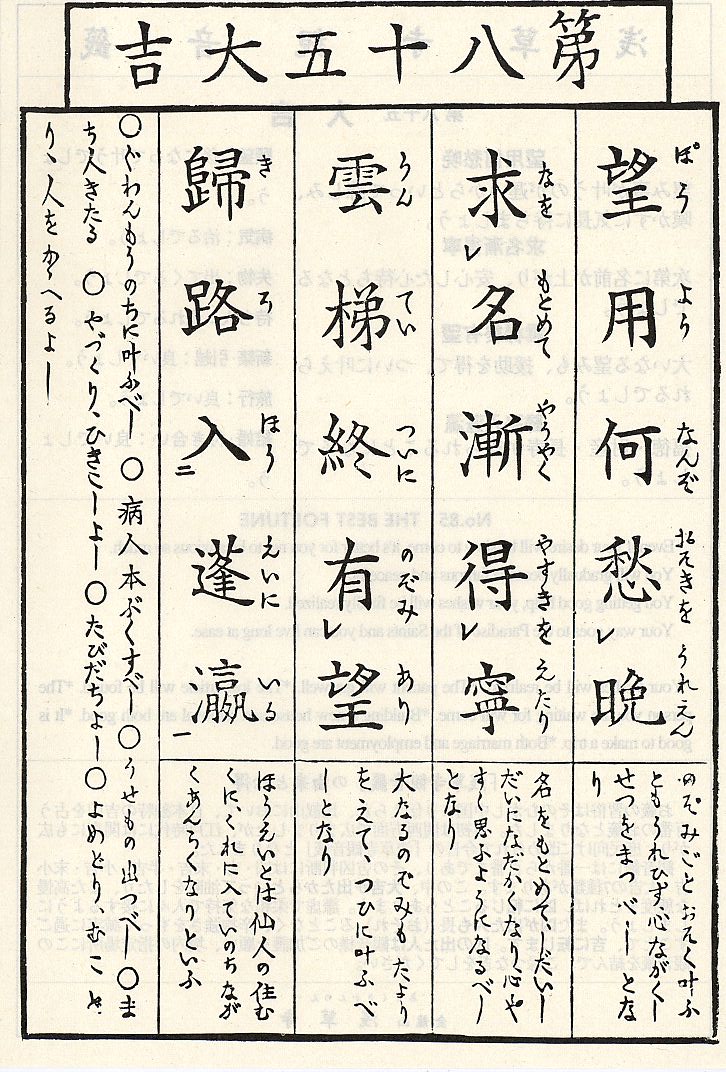 第八十五大吉
望用何愁晩
ぼう よう なんぞ おそきを うれえん
のぞみごとおそく叶ふ
ともうれひず心ながくし
せつをまつべしとな
り
求レ名漸得レ寧
なを もとめて やうやく やすきを えたり
名をもとめてしだいし
だいになだかくなり心や
すく思ふよふになるべし
となり
雲梯終有レ望
うん てい ついに のぞみ あり
大なるのぞみもたより
をえてつひに叶ふべ
しとなり
歸路入二蓬瀛一
き ろ ほう えいに いる
ほうえいとは仙人の住む
くにくれに入ていのちなが
くあんらくなりといふ
〇ぐわんもうのちに叶ふべし〇病人本ぶくすべし〇うせもの出づべし〇ま
ち人きたる〇やづくり、ひきこしよし〇たびだちよし〇よめどりむことり
り人をかゝへるよし